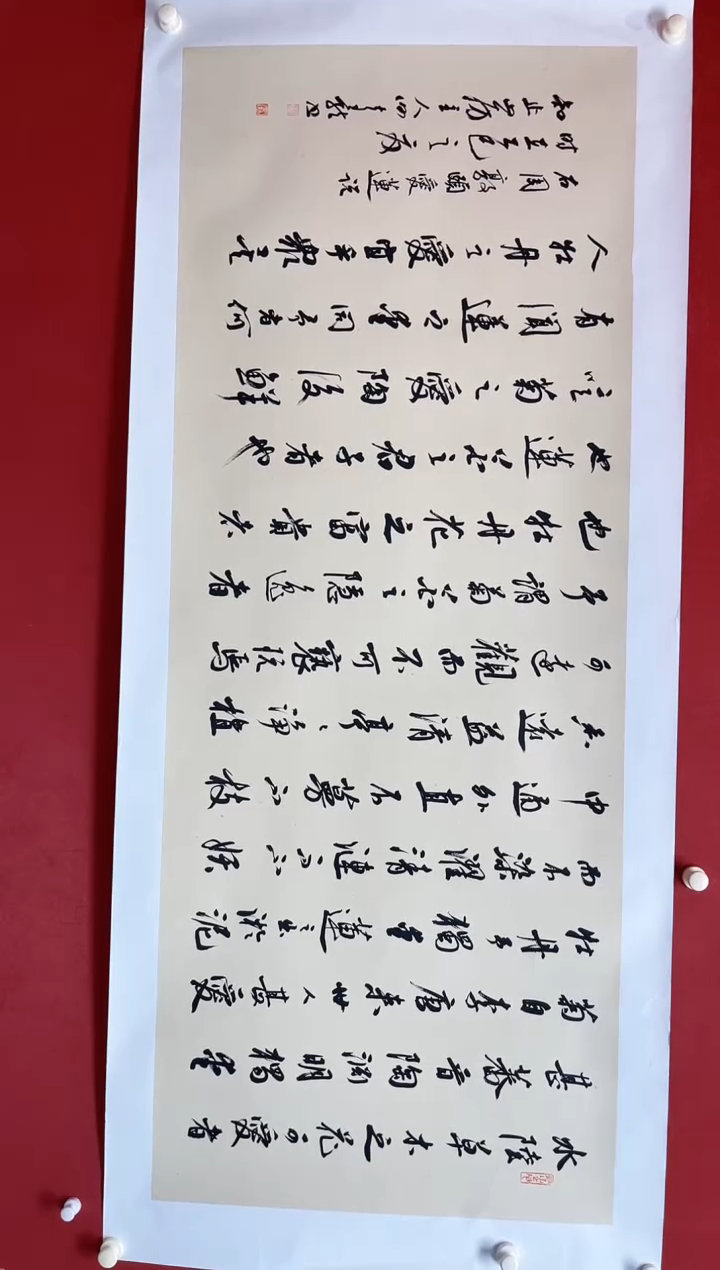 水陸草木之花可愛者
甚蕃晉陶淵明獨愛
菊自李唐来世人甚愛
牡丹予獨愛蓮之出淤泥
而不染濯清漣而不妖
中通外直不蔓不枝
香遠益清亭々淨植
可遠觀而不可褻玩焉
予謂菊花之隱逸者
也牡丹花之富貴者
也蓮花之君子者也
噫菊之愛陶後鮮
有聞蓮之愛同予者何
人牡丹之愛宜乎衆矣
右周敦頤愛蓮说
时在乙巳之
知止主人